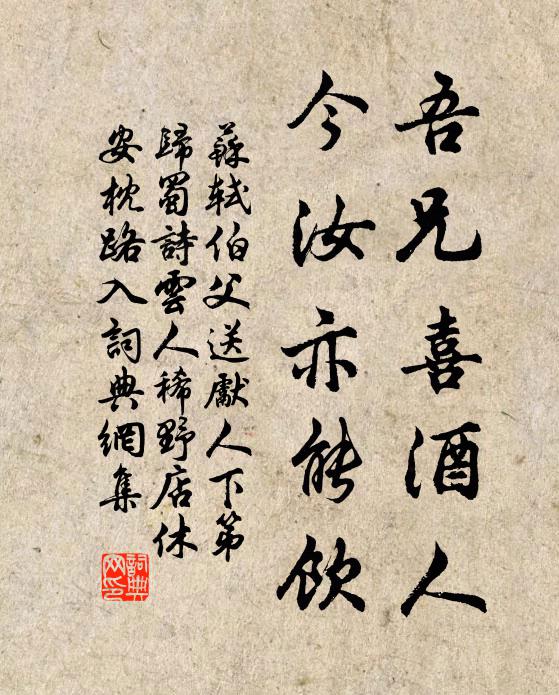 吾兄喜酒人
今汝亦能飲
蘇軾伯父送獻人下第
歸蜀詩雲人稀野店休
安枕路入詞典網集
詞典
网印